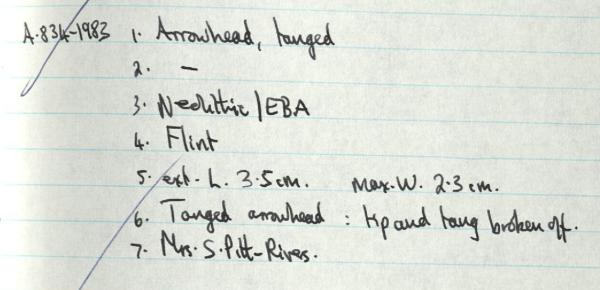 A.834-1983 1. Arrowhead, tanged
2. —
3. Neolithic/EBA
4. Flint
5. ext. L. 3.5cm. Max. W. 2.3 cm.
6. Tanged arrowhead : tip and tang broken off.
7. Mrs. S. Pitt-Rivers.